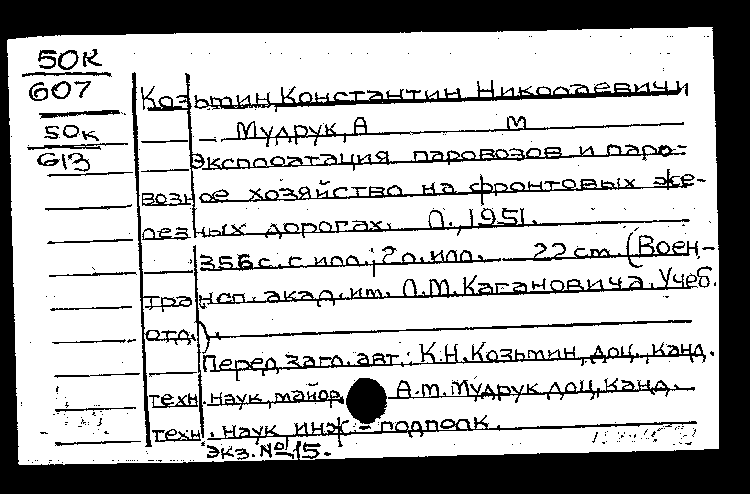 50К
607
50к
613
Козьмин, Константин Николаевичи
Мудрук, А М
Эксплоатация паровозов и паро-
возное хозяйство на фронтовых же-
лезных дорогах. Л., 1951.
356 с. с илл.; 2 л. илл. 22 cm (Воен-
трансп. акад. им. Л.М. Кагановича. Учеб.
отд.).
Перед загл. авт.: К.Н. Козьмин, доц., канд.
техн. наук, майор, А.М. Мудрук доц, канд.
техн. наук инж-подполк.
Экз. № 15.